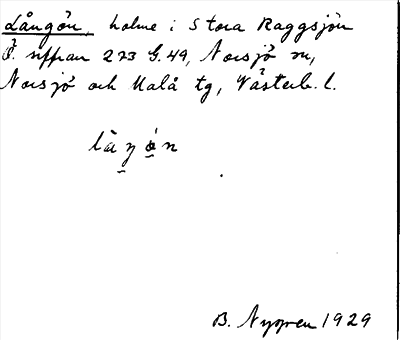 Långön, holme i Stora Raggsjön
Ö. siffran 273 G.49, Norsjö sn,
Norsjö och Malå tg, Västerb. l.
B. Nygren 1929